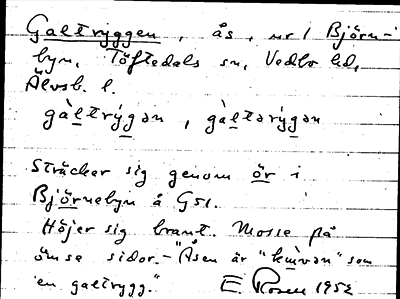 Galtryggen, ås, nr 1 Björne-
byn, Töftedals sn, Vedbo hd,
Älvsb. l.
gàltrýgən, gàltərýgən
Sträcker sig genom ör i
Björnebyn å G51.
Höjer sig brant. Mosse på
ömse sidor. - "Åsen är "kùvən" som
en galtrygg."
E. Rosen 1952